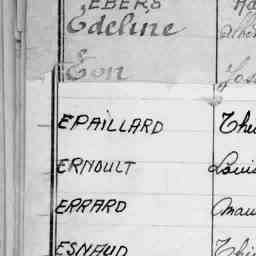 EBERS
Edeline
Eon
EPAILLARD
ERNOULT Louis
ERRARD
ESNAUD